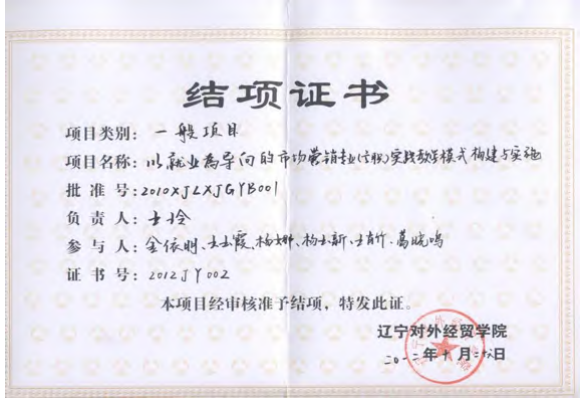 结项证书
项目类别：一般项目
项目名称：以就业为导向的市场营销专业(高职)实践教学模式构建与实施
批准号：2010XJLXJGYB001
负责人：
参与人：金依明、王玉霞、杨娜、杨玉新、葛晓鸣
证书号：2012JY002
本项目经审核准予结项，特发此证。
辽宁对外经贸学院
二〇一二年十月二十八日